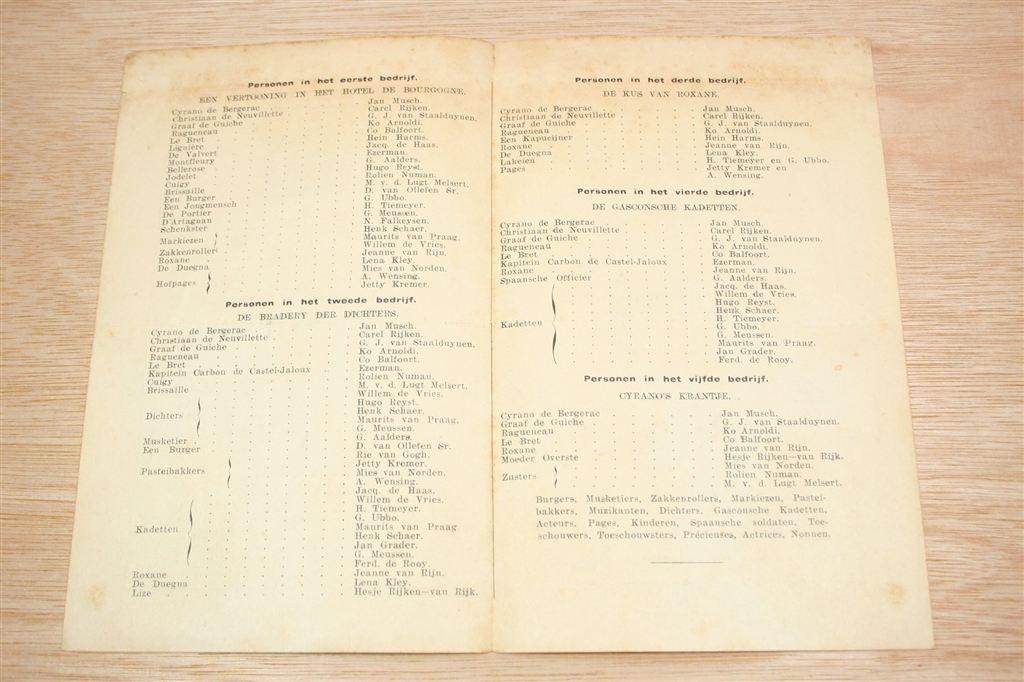 Personen in het eerste bedrijf.
EEN VERTOONING IN HET HOTEL DE BOURGOGNE.
Cyrano de Bergerac . . . Jan Musch.
Christiaan de Neuvillette . . . Carel Rijken.
Graaf de Guiche . . . G. J. van Staalduynen.
Ragueneau . . . Ko Arnoldi.
Le Bret . . . Co Balfoort.
Lignière . . . Hein Harms.
De Valvert . . . Jacq. de Haas.
Montfleury . . . Ezerman.
Bellerose . . . G. Aalders.
Jodelet . . . Hugo Reyst.
Cuigy . . . Rolien Numan.
Brissaille . . . M. v. d. Lugt Melsert.
Een Burger . . . D. van Ollefen Sr.
Een Jongmensch . . . G. Ubbo.
De Portier . . . H. Tiemeyer.
D'Artagnan . . . G. Meussen.
Schenkster . . . N. Falkeysen.
Markiezen } . . . Henk Schaer.
Maurits van Praag.
Zakkenroller . . . Willem de Vries.
Roxane . . . Jeanne van Rijn.
De Duegna . . . Lena Kley.
Hofpages } . . . Mies van Norden.
A. Wensing.
Jetty Kremer.
Personen in het tweede bedrijf.
DE BRADERY DER DICHTERS.
Cyrano de Bergerac . . . Jan Musch.
Christiaan de Neuvillette . . . Carel Rijken.
Graaf de Guiche . . . G. J. van Staalduynen.
Ragueneau . . . Ko Arnoldi.
Le Bret . . . Co Balfoort.
Kapitein Carbon de Castel-Jaloux . . . Ezerman.
Cuigy . . . Rolien Numan.
Brissaille . . . M. v. d. Lugt Melsert.
Willem de Vries.
Hugo Reyst.
Dichters { . . . Henk Schaer.
Maurits van Praag.
G. Meussen.
Musketier . . . G. Aalders.
Een Burger . . . D. van Ollefen Sr.
Rie van Gogh.
Pasteibakkers } . . . Jetty Kremer.
Mies van Norden.
A. Wensing.
Jacq. de Haas.
Willem de Vries.
H. Tiemeyer.
G. Ubbo.
Kadetten { . . . Maurits van Praag
Henk Schaer.
Jan Grader.
G. Meussen.
Ferd. de Rooy.
Roxane . . . Jeanne van Rijn.
De Duegna . . . Lena Kley.
Lize . . . Hesje Rijken—van Rijk.
Personen in het derde bedrijf.
DE KUS VAN ROXANE.
Cyrano de Bergerac . . . Jan Musch.
Christiaan de Neuvillette . . . Carel Rijken.
Graaf de Guiche . . . G. J. van Staalduynen.
Ragueneau . . . Ko Arnoldi.
Een Kapucijner . . . Hein Harms.
Roxane . . . Jeanne van Rijn.
De Duegna . . . Lena Kley.
Lakeien . . . H. Tiemeyer en G. Ubbo.
Pages . . . Jetty Kremer en
A. Wensing.
Personen in het vierde bedrijf.
DE GASCONSCHE KADETTEN.
Cyrano de Bergerac . . . Jan Musch.
Christiaan de Neuvillette . . . Carel Rijken.
Graaf de Guiche . . . G. J. van Staalduynen.
Ragueneau . . . Ko Arnoldi.
Le Bret . . . Co Balfoort.
Kapitein Carbon de Castel-Jaloux . . . Ezerman.
Roxane . . . Jeanne van Rijn.
Spaansche Officier . . . G. Aalders.
Jacq. de Haas.
Willem de Vries.
Hugo Reyst.
Henk Schaer.
Kadetten { . . . H. Tiemeyer.
G. Ubbo.
G. Meussen.
Maurits van Praag.
Jan Grader.
Ferd. de Rooy.
Personen in het vijfde bedrijf.
CYRANO'S KRANTJE.
Cyrano de Bergerac . . . Jan Musch.
Graaf de Guiche . . . G. J. van Staalduynen.
Ragueneau . . . Ko Arnoldi.
Le Bret . . . Co Balfoort.
Roxane . . . Jeanne van Rijn.
Moeder Overste . . . Hesje Rijken—van Rijk.
Mies van Norden.
Zusters } . . . Rolien Numan.
M. v. d. Lugt Melsert.
Burgers, Musketiers, Zakkenrollers, Markiezen, Pastei-
bakkers, Muzikanten, Dichters, Gasconsche Kadetten,
Acteurs, Pages, Kinderen, Spaansche soldaten, Toe-
schouwers, Toeschouwsters, Précieuses, Actrices, Nonnen.